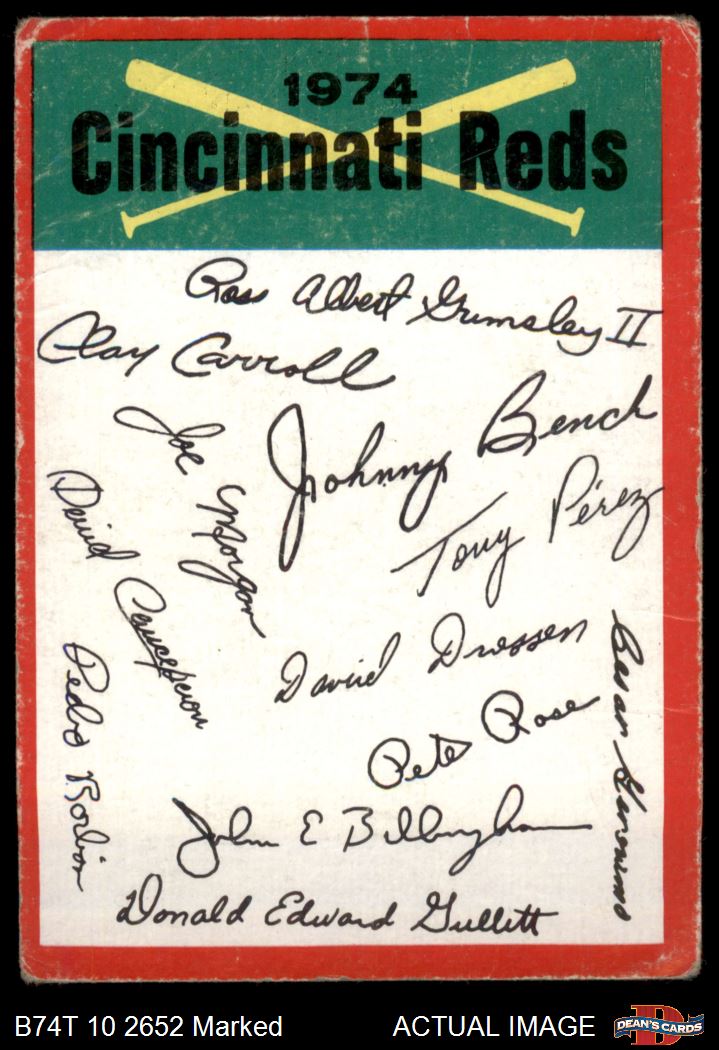 1974
Cincinnati Reds
Ross Albert Grimsley II
Clay Carroll
Johnny Bench
Joe Morgan
Tony Pérez
David Concepcion
David Driessen
Cesar Geronimo
Pedro Borbon
Pete Rose
John E Billingham
Donald Edward Gullett
B74T 10 2652 Marked
ACTUAL IMAGE
D
DEAN'S CARDS